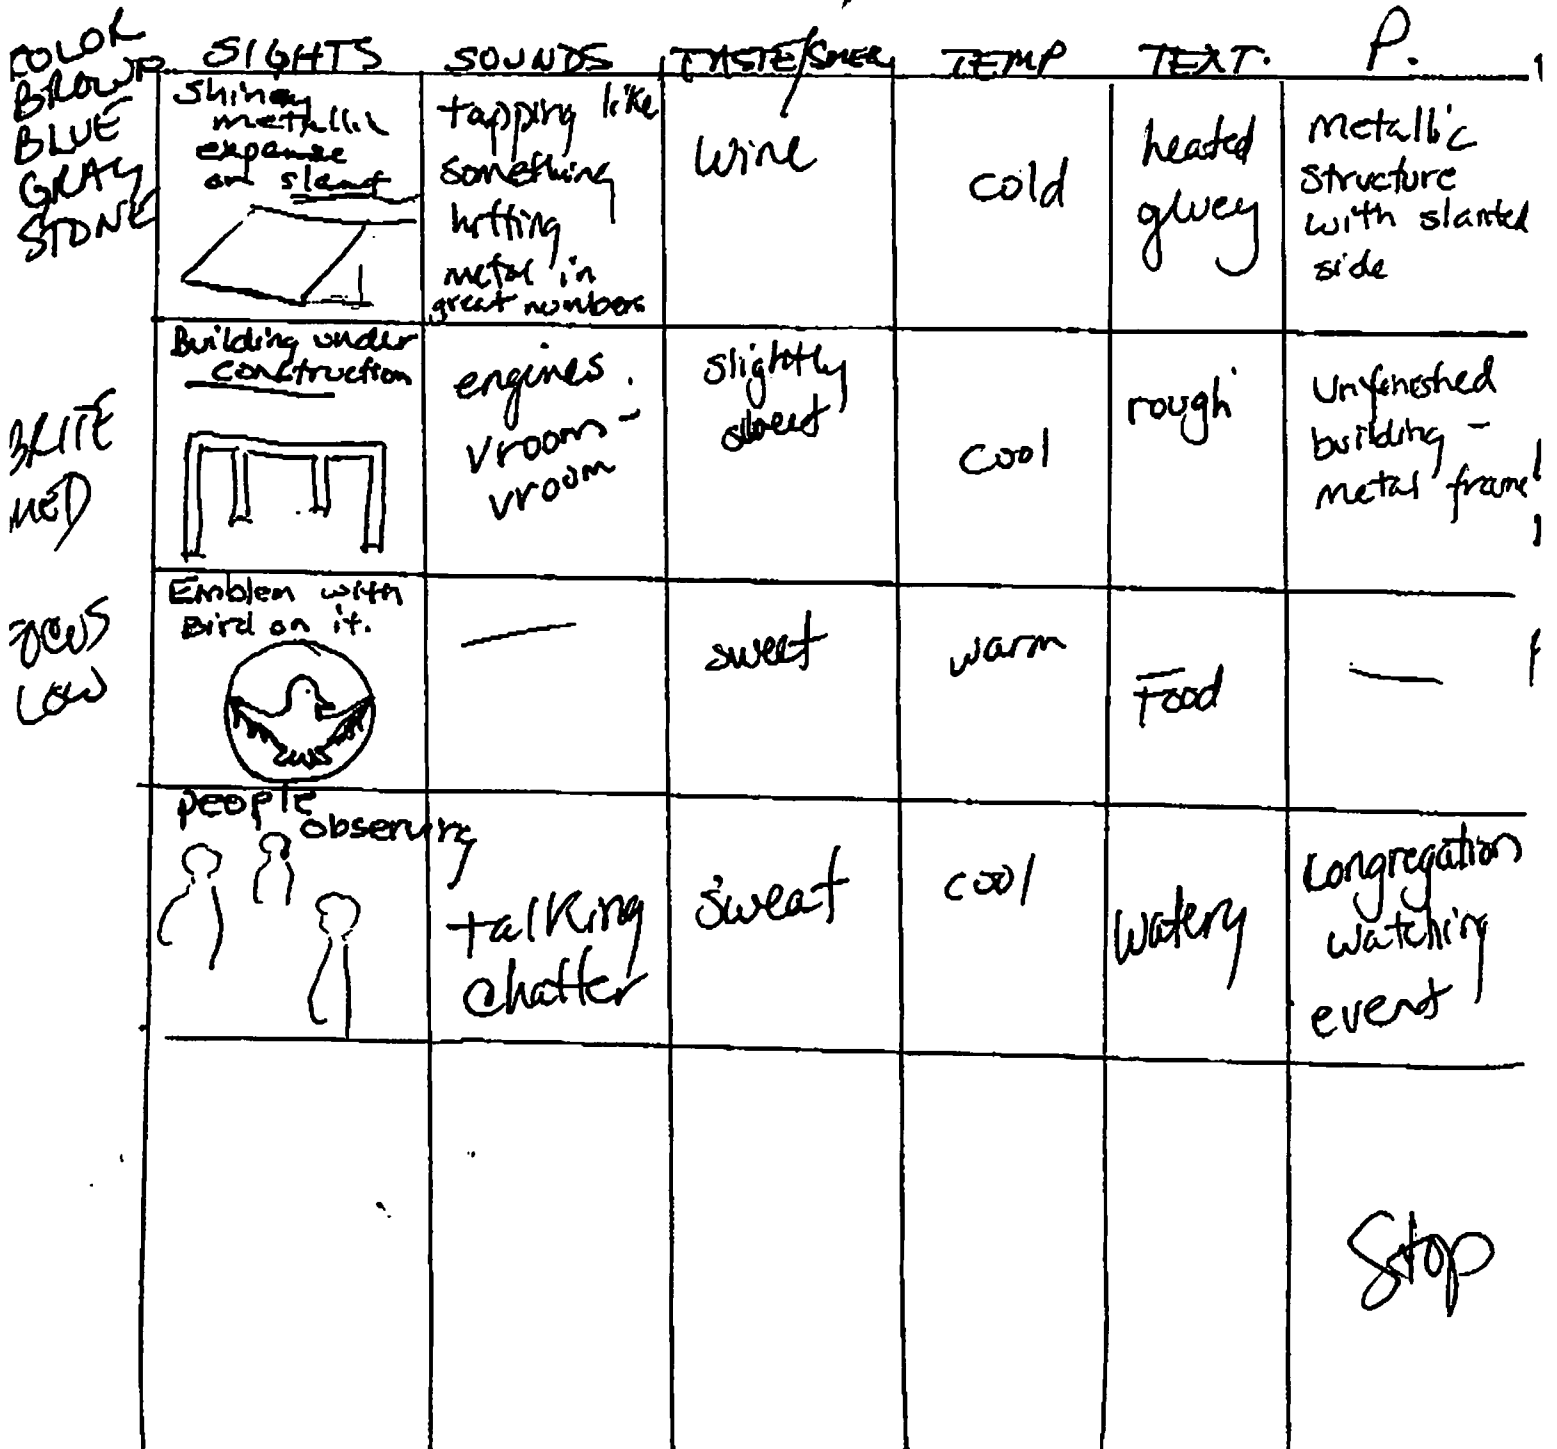 COLOR
BROWN
BLUE
GRAY
STONE
SIGHTS
SOUNDS
TASTE/SMELL
TEMP
TEXT.
P.
Shiney
metallic
expanse
on slant
tapping like
something
hitting
metal in
great numbers
wine
cold
heated
gluey
metallic
structure
with slanted
side
BRITE
MED
Building under
construction
engines
vroom-
vroom
slightly
sweet
cool
rough
Unfinished
building -
metal frame
FOCUS
LOW
Emblem with
Bird on it.
sweet
warm
Food
people
observing
talking
chatter
sweat
cool
watery
congregation
watching
event
Stop